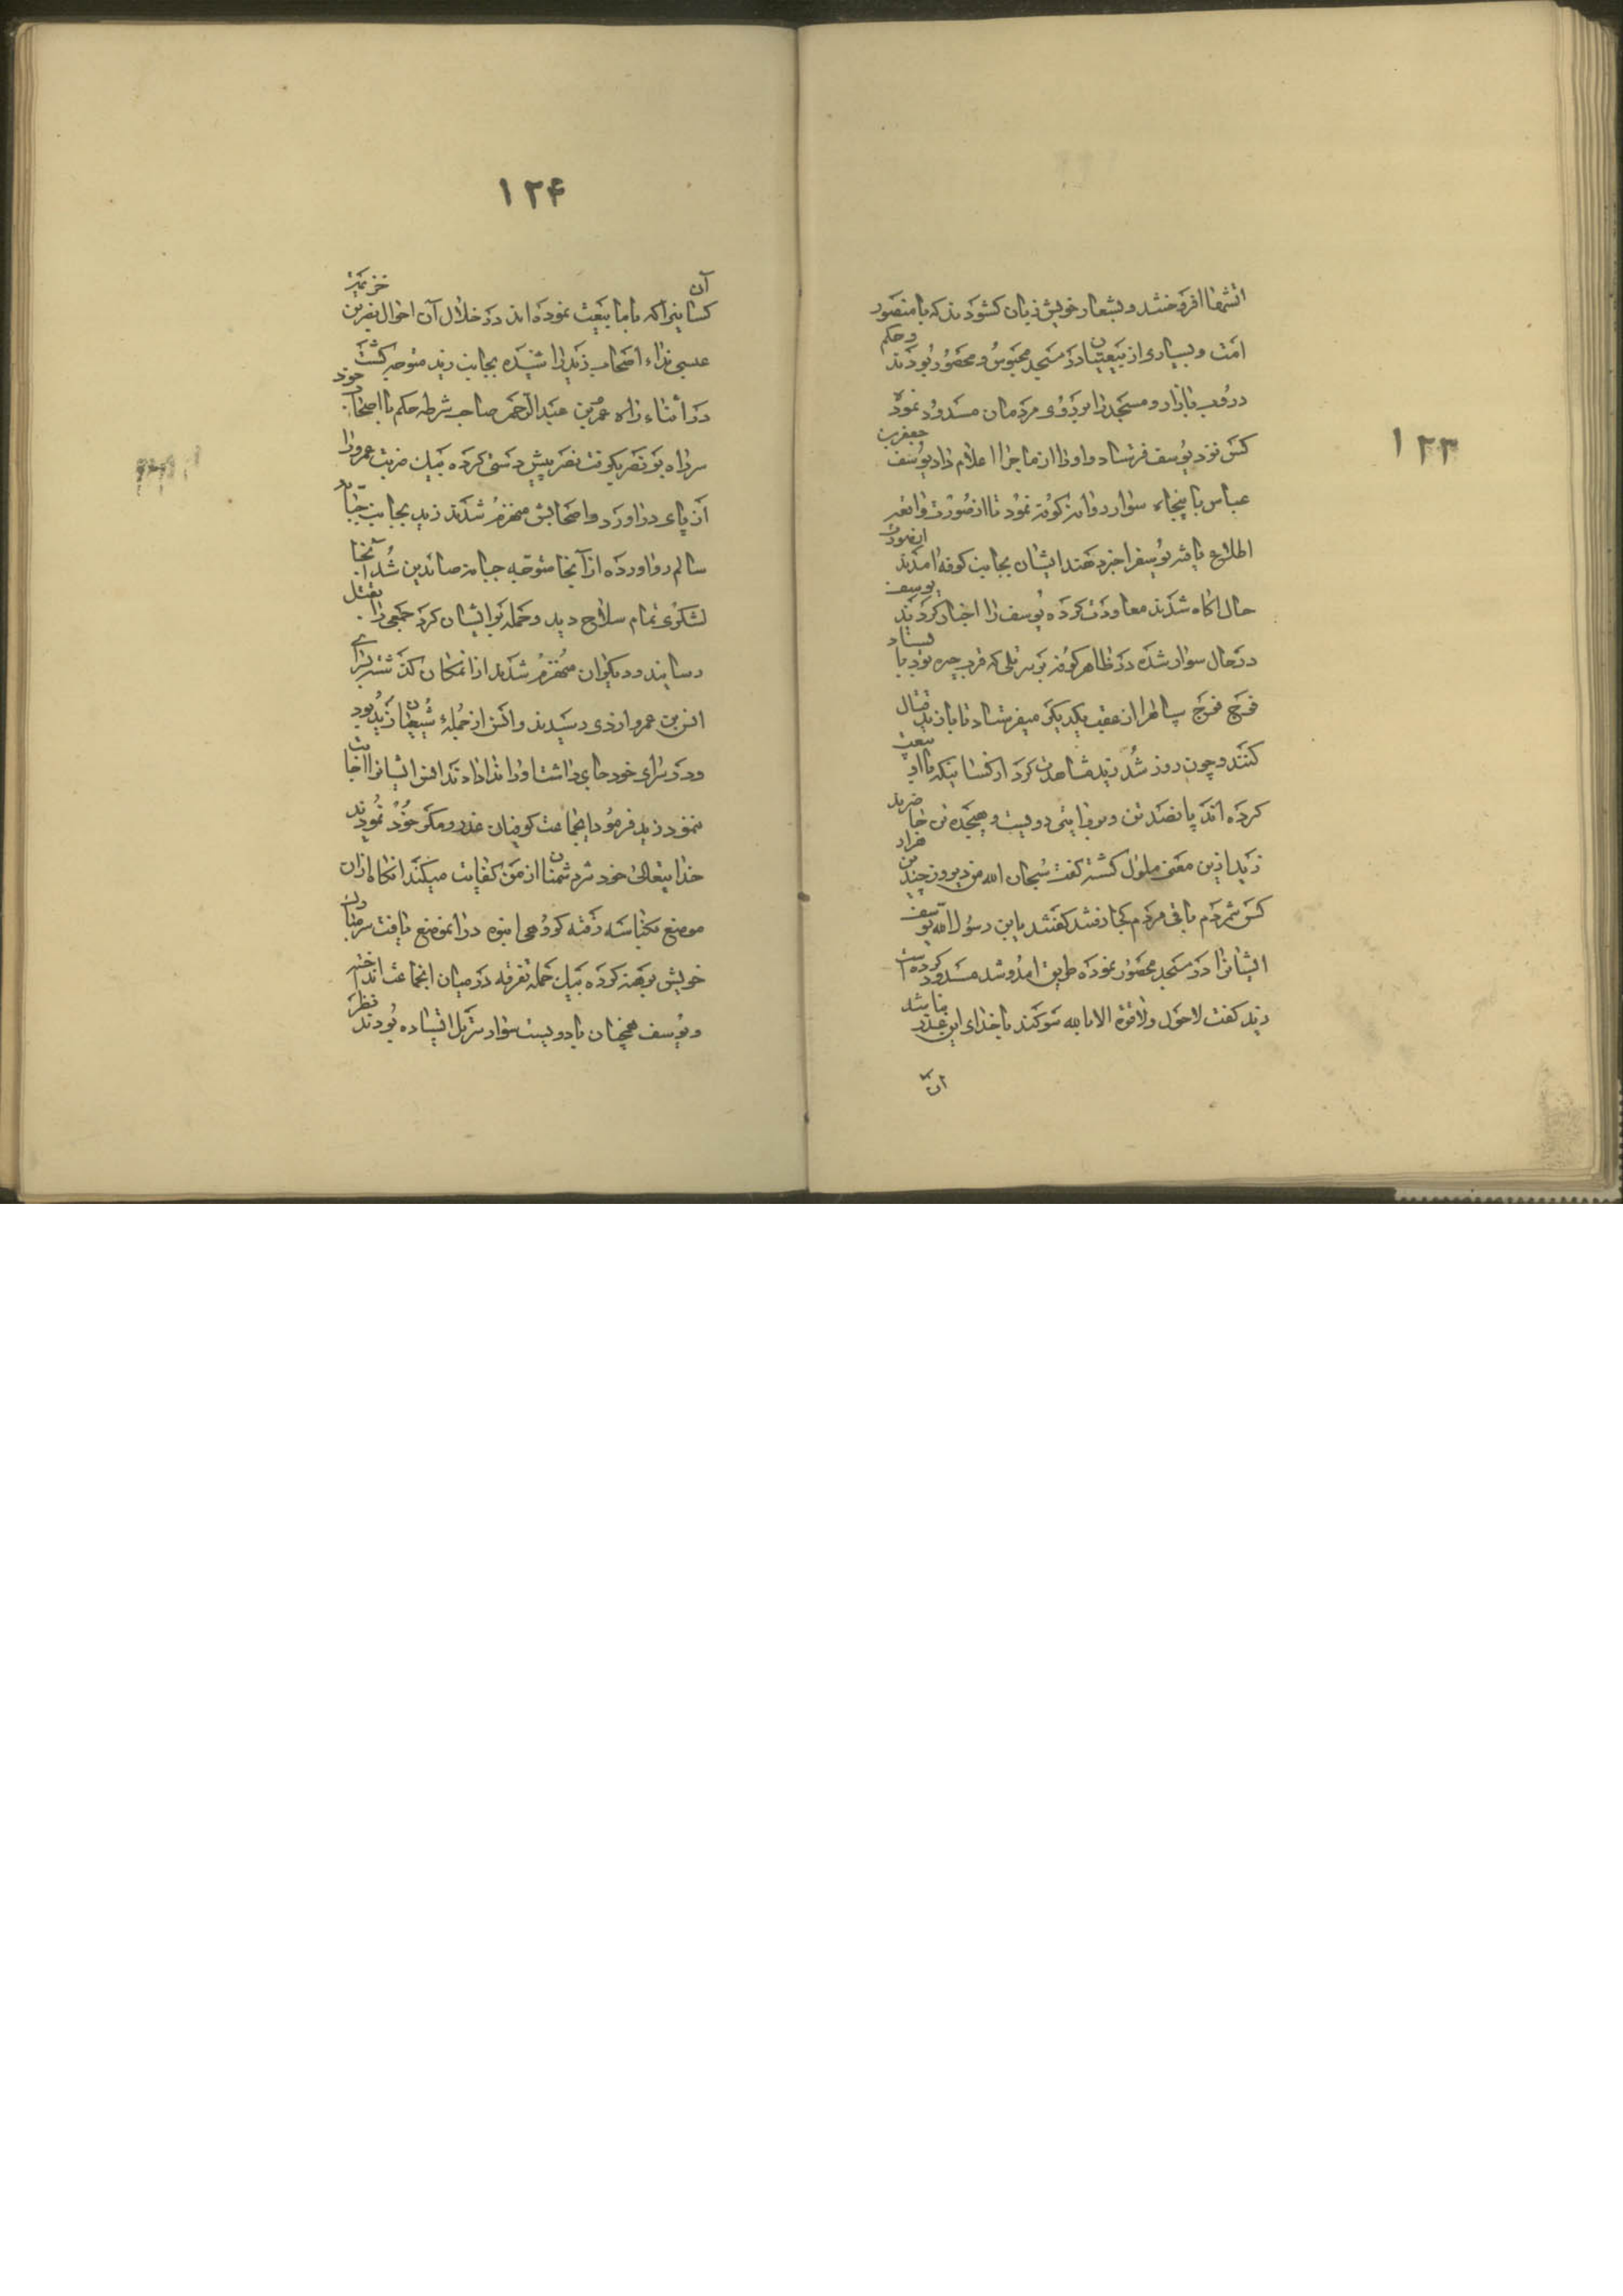 ۱۲۳
آتشها افروختند و بشعار خویش زبان کشودند که یا منصور
امت و بسیاری از بیعتیان در مسجد محبوس و محصور بودند و حکم
دروب بازار و مسجد را بر روی مردمان مسدود نموده
کس نزد یوسف فرستاد و او را از ماجرا اعلام داد یوسف جعفر بن
عباس با پنجاه سوار روانه کوفه نمود تا از صورت واقعه
اطلاع یافته یوسف را خبر دهند ایشان بجانب کوفه آمدند از صورت
حال آگاه شدند معاودت کرده یوسف را اخبار کردند یوسف
در حال سوار شده در ظاهر کوفه بر سر تلی که قرب حیره بود بایستاد
فوج فوج سپاه را از عقب یکدیگر میفرستاد تا با زید قتال
کنند و چون روز شد زید مشاهدت کرد از کسانیکه با او بیعت
کرده اند پانصد تن و بروایتی دویست و هیجده تن حاضرند
زید ازین معنی ملول کشته کفت سبحان الله من دیروز چندین هزار
کس شمردم باقی مردم کجا رفتند کفتند یابن رسول الله یوسف
ایشانرا در مسجد محصور نموده طریق آمد و شد مسدود کرده است
زید کفت لا حول ولا قوة الا بالله سوکند با خدای این عذر نباشد
آن
۱۲۴
آن کسانیرا که با ما بیعت نموده اند در خلال آن احوال نصر بن خزیمة
عبسی نداء اصحاب زید را شنیده بجانب زید متوجه کشت
در أثناء راه عمر بن عبد الرحمن صاحب شرطه حکم با اصحاب خود
سر راه بر نصر بگرفت نصر پیش دستی کرده بیک ضربت عمرو را
از پای در آورد و اصحابش منهزم شدند زید بجانب جبانه
سالم رو آورده از آنجا متوجه جبانه صائدین شد آنجا
لشکری تمام سلاح دید و حمله بر ایشان کرد جمعی را بقتل
رسانید و دیگران منهزم شدند از آنمکان کذشته بسرای
انس بن عمرو ازدی رسیدند و انس از جمله شیعیان زید بود
و در سرای خود جای داشت او را ندا دادند انس ایشانرا اجابت
ننمود زید فرمود اینجماعت کوفیان غدر و مکر خود نمودند
خدایتعالی خود شر دشمنان از من کفایت میکند آنگاه از آن
موضع بکناسه رفته کروهی انبوه در آنموضع یافت سر مبارک
خویش برهنه کرده بیک حمله تفرقه در میان آنجماعت انداخته
و یوسف همچنان با دویست سوار بر تل ایستاده بودند نظر